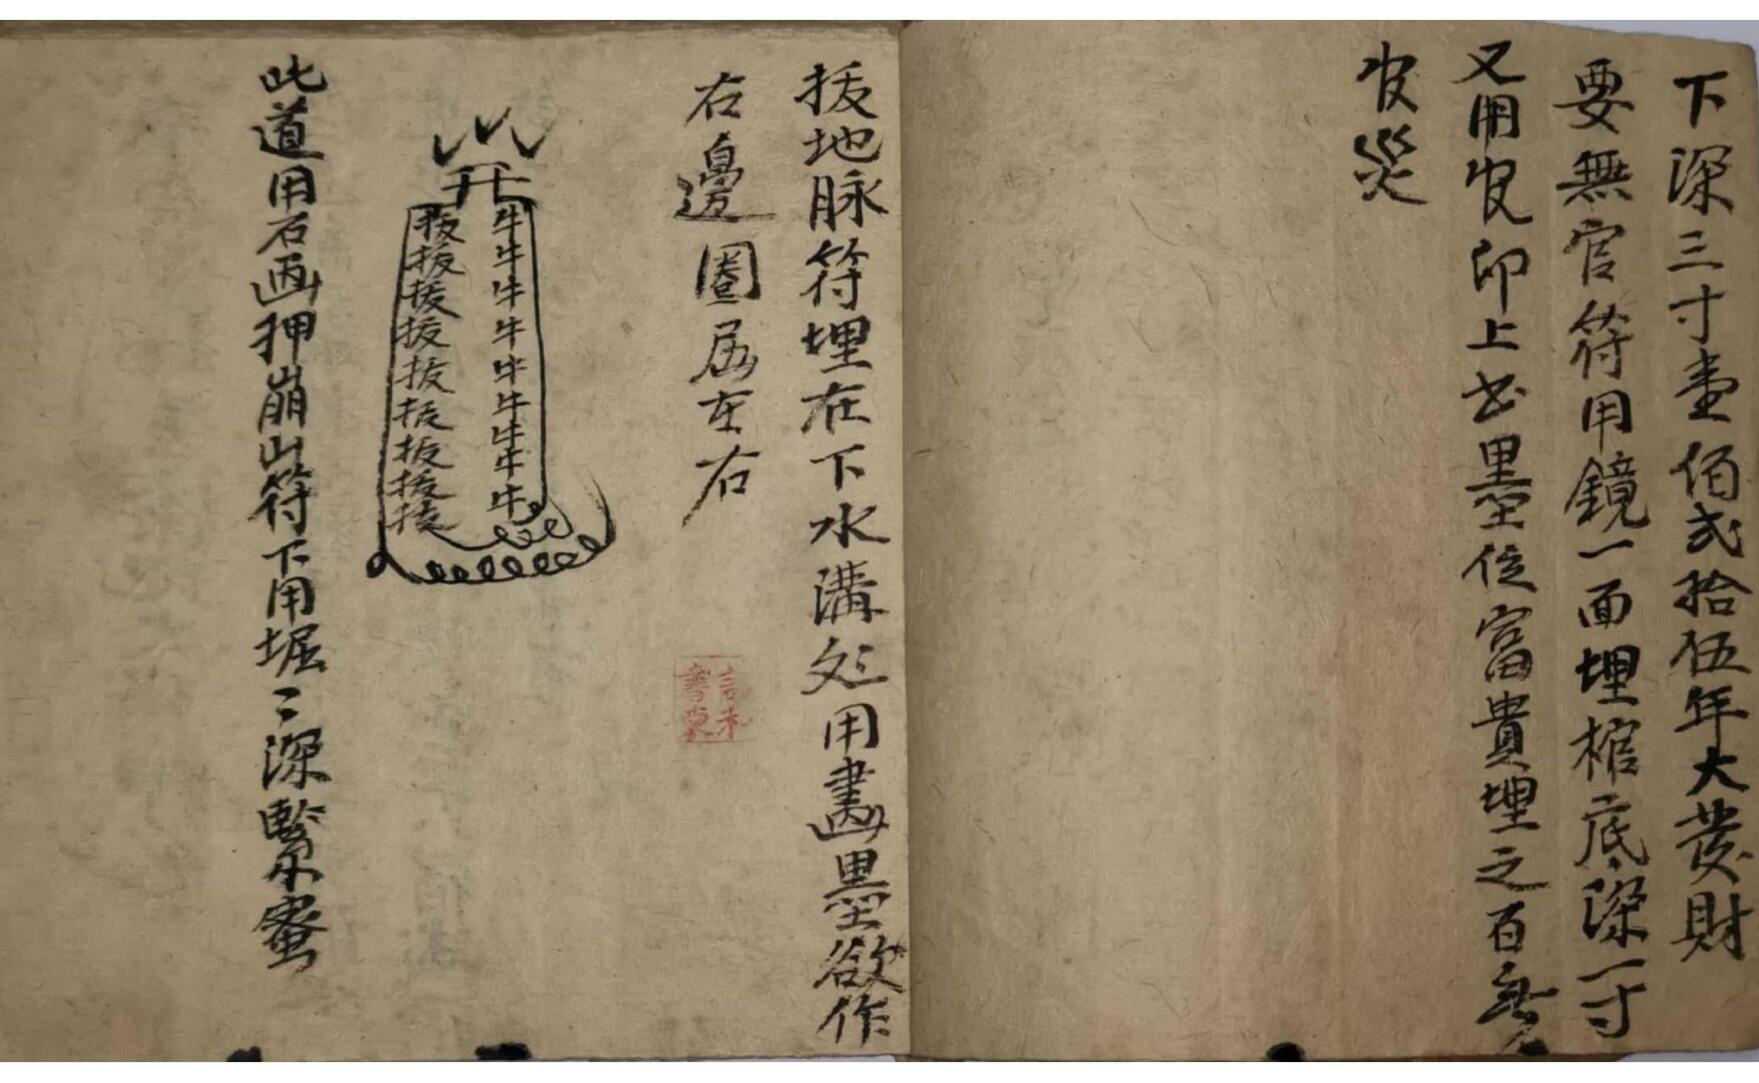 下深三寸壹佰弍拾伍年大發財
要無官符用鏡一面埋棺底深一寸
又用 印上书墨位富貴埋之百無
災
拔地脉符埋在下水溝处用畫墨欲作
右邊圈 左右
牛牛牛牛牛牛牛牛牛
拔拔拔拔拔拔拔拔拔
此道用石画押崩山符下用堀〻深緊蜜